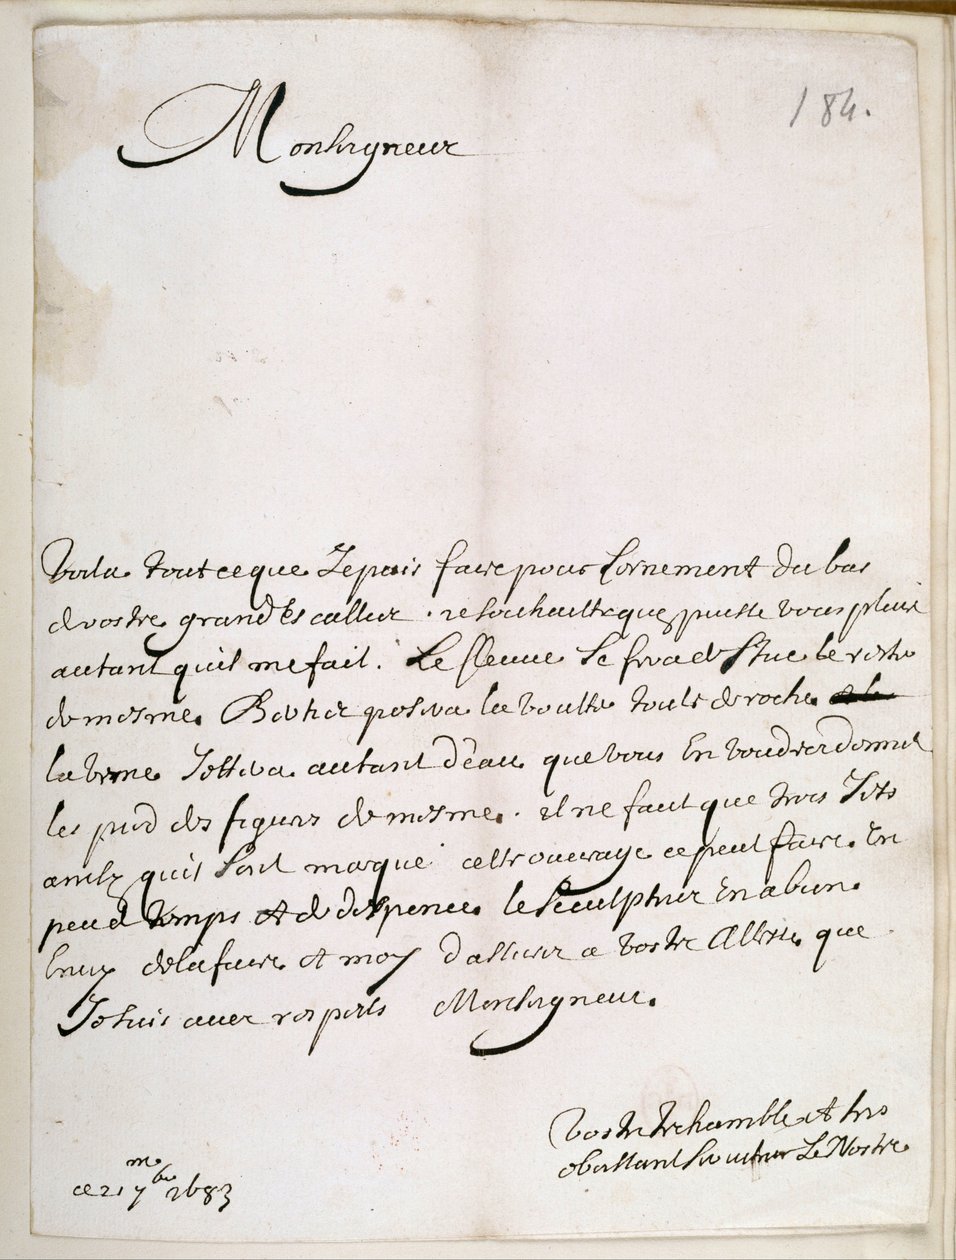 184.
Monseigneur
Voila tout ce que Je puis faire pour Lornement du bas
de vostre grand Escallier . Je souhaitte que puisse vous plaire
autant quil me fait . Le fleuve Se fera de Stuc le reste
de mesme. posera la voutte toute de roche.
la verne Jettera autant Deau que vous En voudrer donner
les pied des figures de mesme. il ne faut que trois Jets
ainsy quil Soit marque cette ouvrage ce peut faire. En
peu de temps et de despence. le Sculpteur En a bien
Envy de la faire et moy Dassurer a vostre Altesse que
Je suis avec respects Monseigneur.
Vostre tre humble et tres
obeissant Serviteur Le Nostre
ce 21 me 7 bre 1683